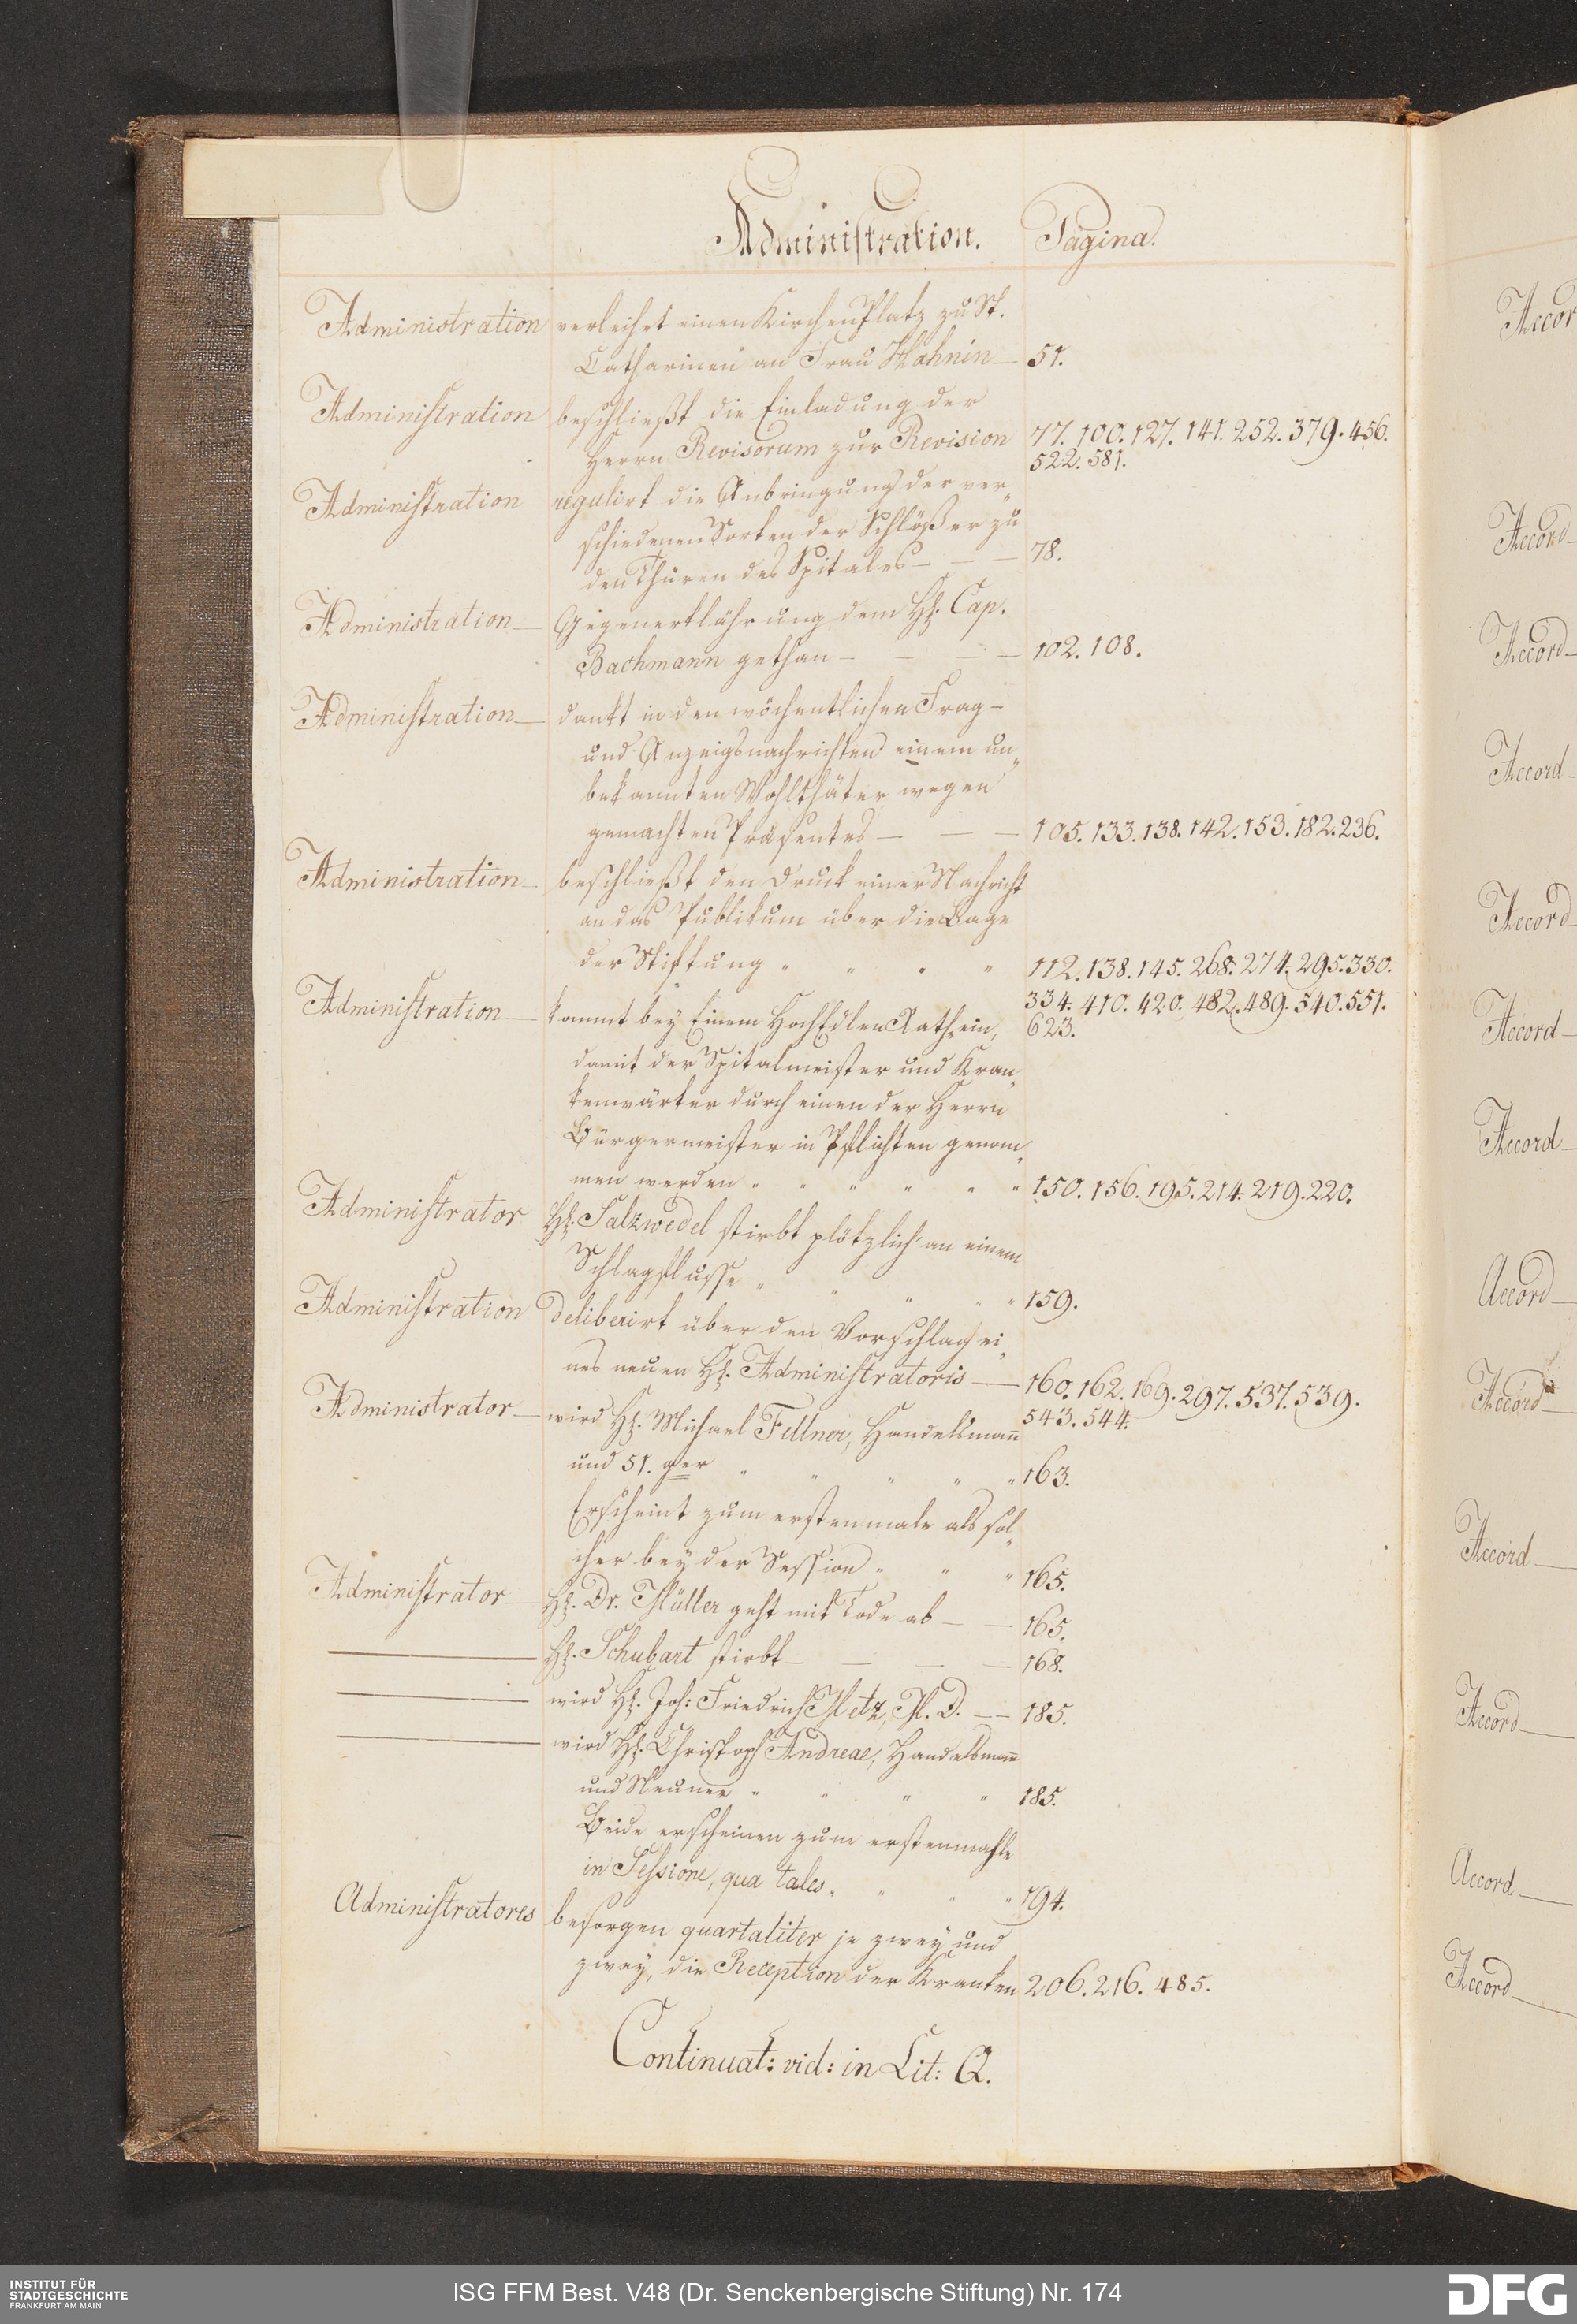 Administration. Pagina.
Administration verleihet einen KirchenPlatz zu St.
Catharinen an Frau Hahnin — 51.
Administration beschließt die Einladung der
Herrn Revisorum zur Revision 77. 100. 127. 141. 252. 379. 456.
522. 581.
Administration regulirt die Anbringung der ver„
schiedenen Sorten der Schlößer zu
den Thüren des Spitales — — — 78.
Administration — Gegenerklährung dem Hh. Cap.
Bachmann gethan — — — — 102. 108.
Administration — dankt in den wöchentlichen Frag-
und Anzeigsnachrichten einem un„
bekannten Wohlthäter wegen
gemachten Präsentes — — — 105. 133. 138. 142. 153. 182. 236.
Administration — beschließt den Druck einer Nachricht
an das Publikum über die Lage
der Stiftung „ „ „ „ 112. 138. 145. 268. 274. 295. 330.
334. 410. 420. 482. 489. 540. 551.
Administration — kommt bey Einem HochEdlen Rath ein, 623.
damit der Spitalmeister und Kran„
kenwärter durch einen der Herrn
Bürgermeister in Pflichten genom„
men werden „ „ „ „ „ „ 150. 156. 195. 214. 219. 220.
Administrator Hh. Salzwedel stirbt plötzlich an einem
Schlagflusse „ „ „ „ „ 159.
Administration deliberirt über den Vorschlag ei„
nes neuen Hh. Administratoris — 160. 162. 169. 297. 537. 539.
543. 544.
Administrator — wird Hh. Michael Fellner, Handelsmañ
und 51. ger „ „ „ „ „ 163.
Erscheint zum erstenmale als sol„
cher bey der Session „ „ „ 165.
Administrator — Hh. Dr. Müller geht mit Tode ab — — 165.
— Hh. Schubart stirbt — — — — 168.
— wird Hh. Joh: Friedrich Metz, M. D. — — 185.
— wird Hh. Christoph Andreae, Handelsmañ
und Neuner „ „ „ „ 185.
Beide erscheinen zum erstenmahle
in Sessione, qua tales „ „ „ „ 194.
Administratores besorgen quartaliter je zwey und
zwey, die Reception der Kranken 206. 216. 485.
Continuat: vid: in Lit: Q.
Accord
Accord —
Accord —
Accord —
Accord —
Accord —
Accord —
Accord —
Accord —
Accord —
Accord —
Accord —
Accord —
INSTITUT FÜR
STADTGESCHICHTE
FRANKFURT AM MAIN
ISG FFM Best. V48 (Dr. Senckenbergische Stiftung) Nr. 174
DFG